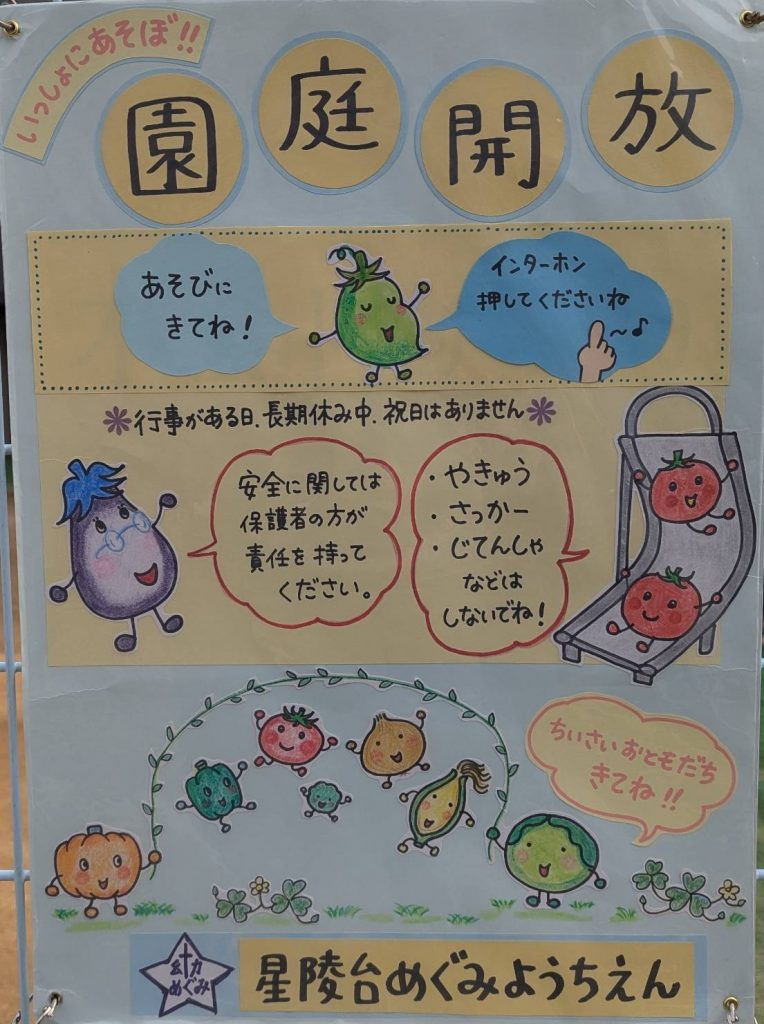 いっしょにあそぼ!!
園庭開放
あそびに
きてね!
インターホン
押してくださいね
～♪
❋行事がある日、長期休み中、祝日はありません❋
安全に関しては
保護者の方が
責任を持って
ください。
・やきゅう
・さっかー
・じてんしゃ
などは
しないでね!
ちいさいおともだち
きてね!!
めぐみ
星陵台めぐみようちえん